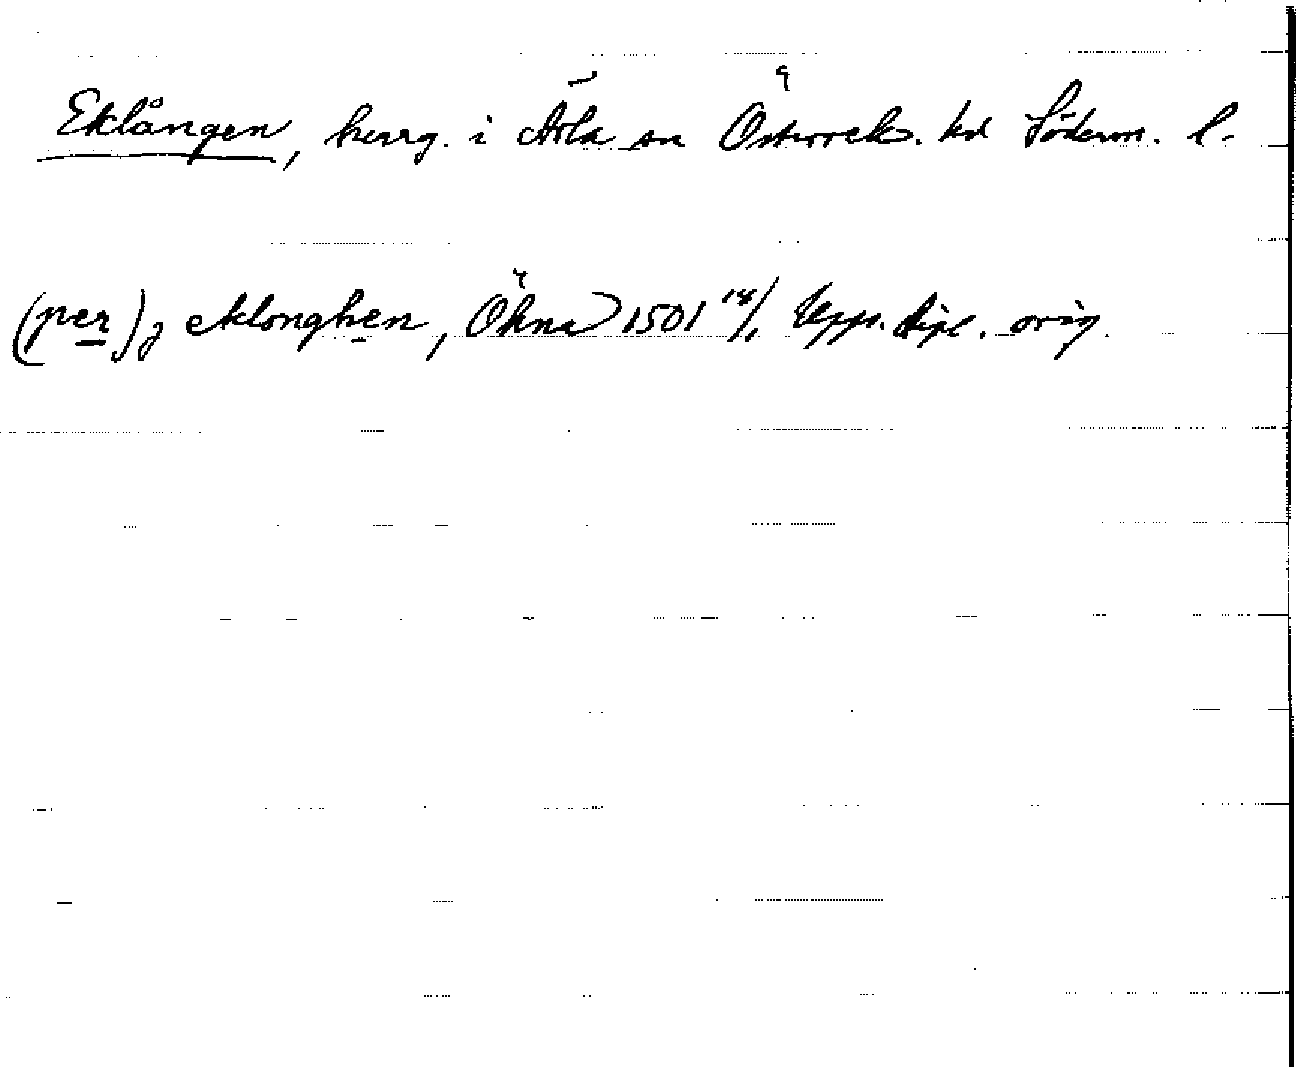 Eklången, herrg. i Ärla sn Österrek. hd Söderm. l.
(per) j eklonghen, Ökna 1501 14/1 Upps. dipl. orig.